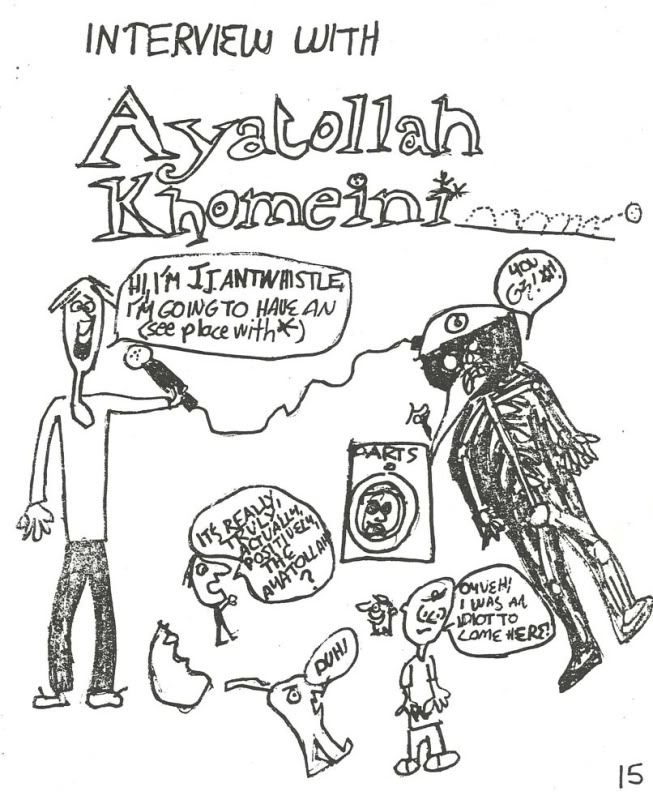 INTERVIEW WITH
Ayatollah
Khomeini**
HI, I'M JJ ANTWHISTLE,
I'M GOING TO HAVE AN
(see place with *)
YOU
DARTS
IT'S REALLY,
TRULY,
ACTUALLY,
POSITIVELY,
THE
AYATOLLAH
?
DUH!
OY VEH!
I WAS AN
IDIOT TO
COME HERE!
15